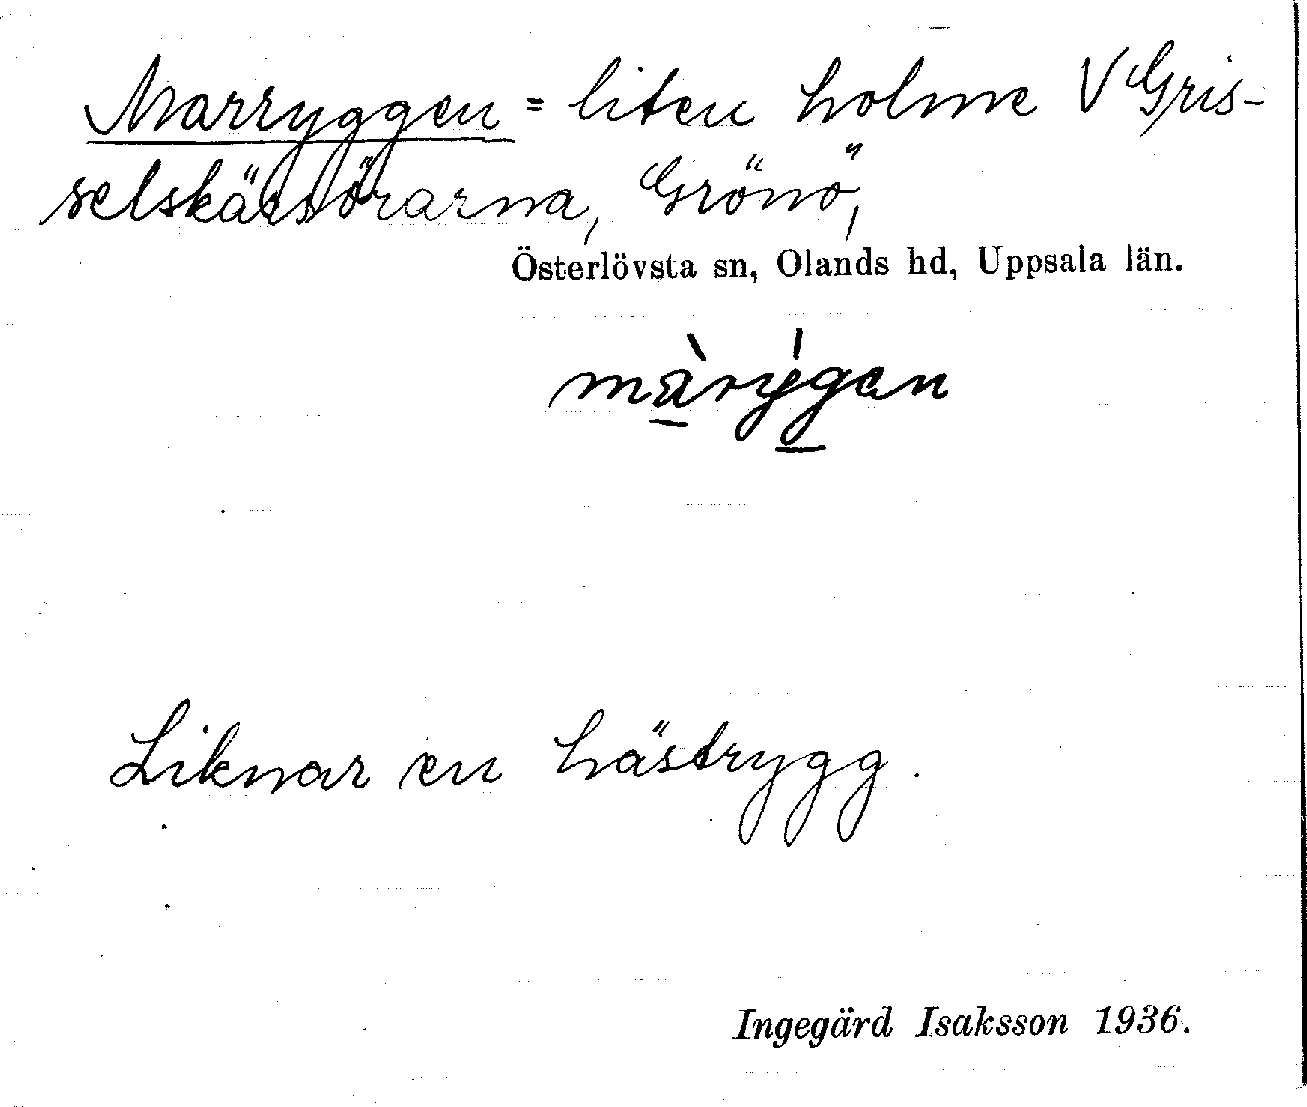 Marryggen = liten holme V Gris-
selskärsörarna, Grönö,
Österlövsta sn, Olands hd, Uppsala län.
màrýgen
Liknar en hästrygg.
Ingegärd Isaksson 1936.